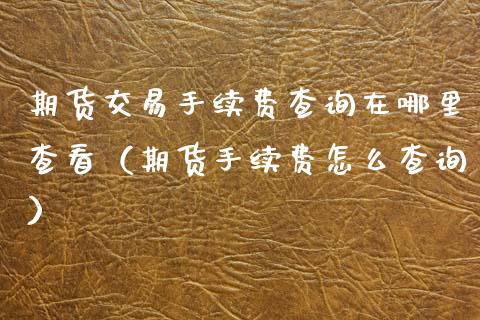 期货交易手续费查询在哪里
查看（期货手续费怎么查询
）